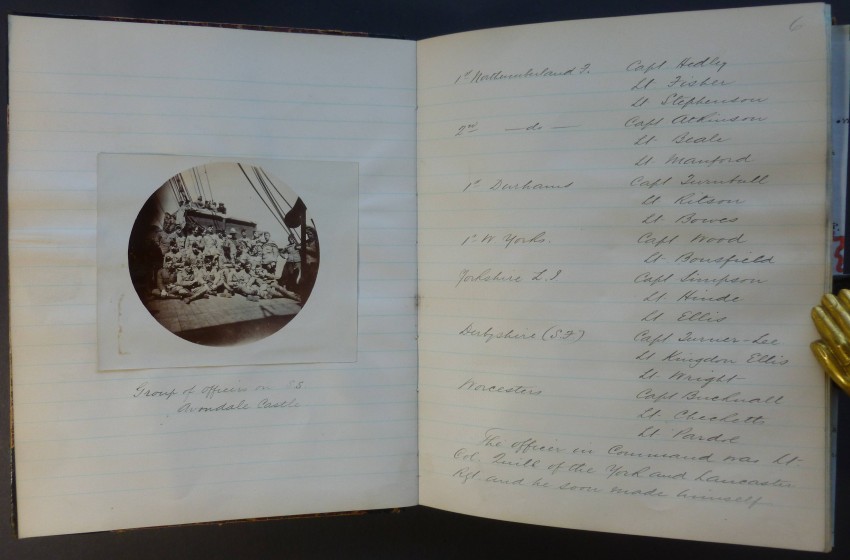 Group of officers on S.S.
Avondale Castle
6
1st Northumberland F. Capt Hedley
Lt Fisher
Lt Stephenson
2nd — do — Capt Atkinson
Lt Beale
Lt Manford
1st Durhams Capt Turnbull
Lt Ritson
Lt Bowes
1st W. Yorks. Capt Wood
Lt Bousfield
Yorkshire L.I Capt Simpson
Lt Hinde
Lt Ellis
Derbyshire (S.F) Capt Turner-Lee
Lt Kingdon Ellis
Lt Wright
Worcesters Capt Bucknall
Lt Checketts
Lt Pardoe
The officer in Command was Lt-
Col. of the York and Lancaster
Rgt. and he soon made himself